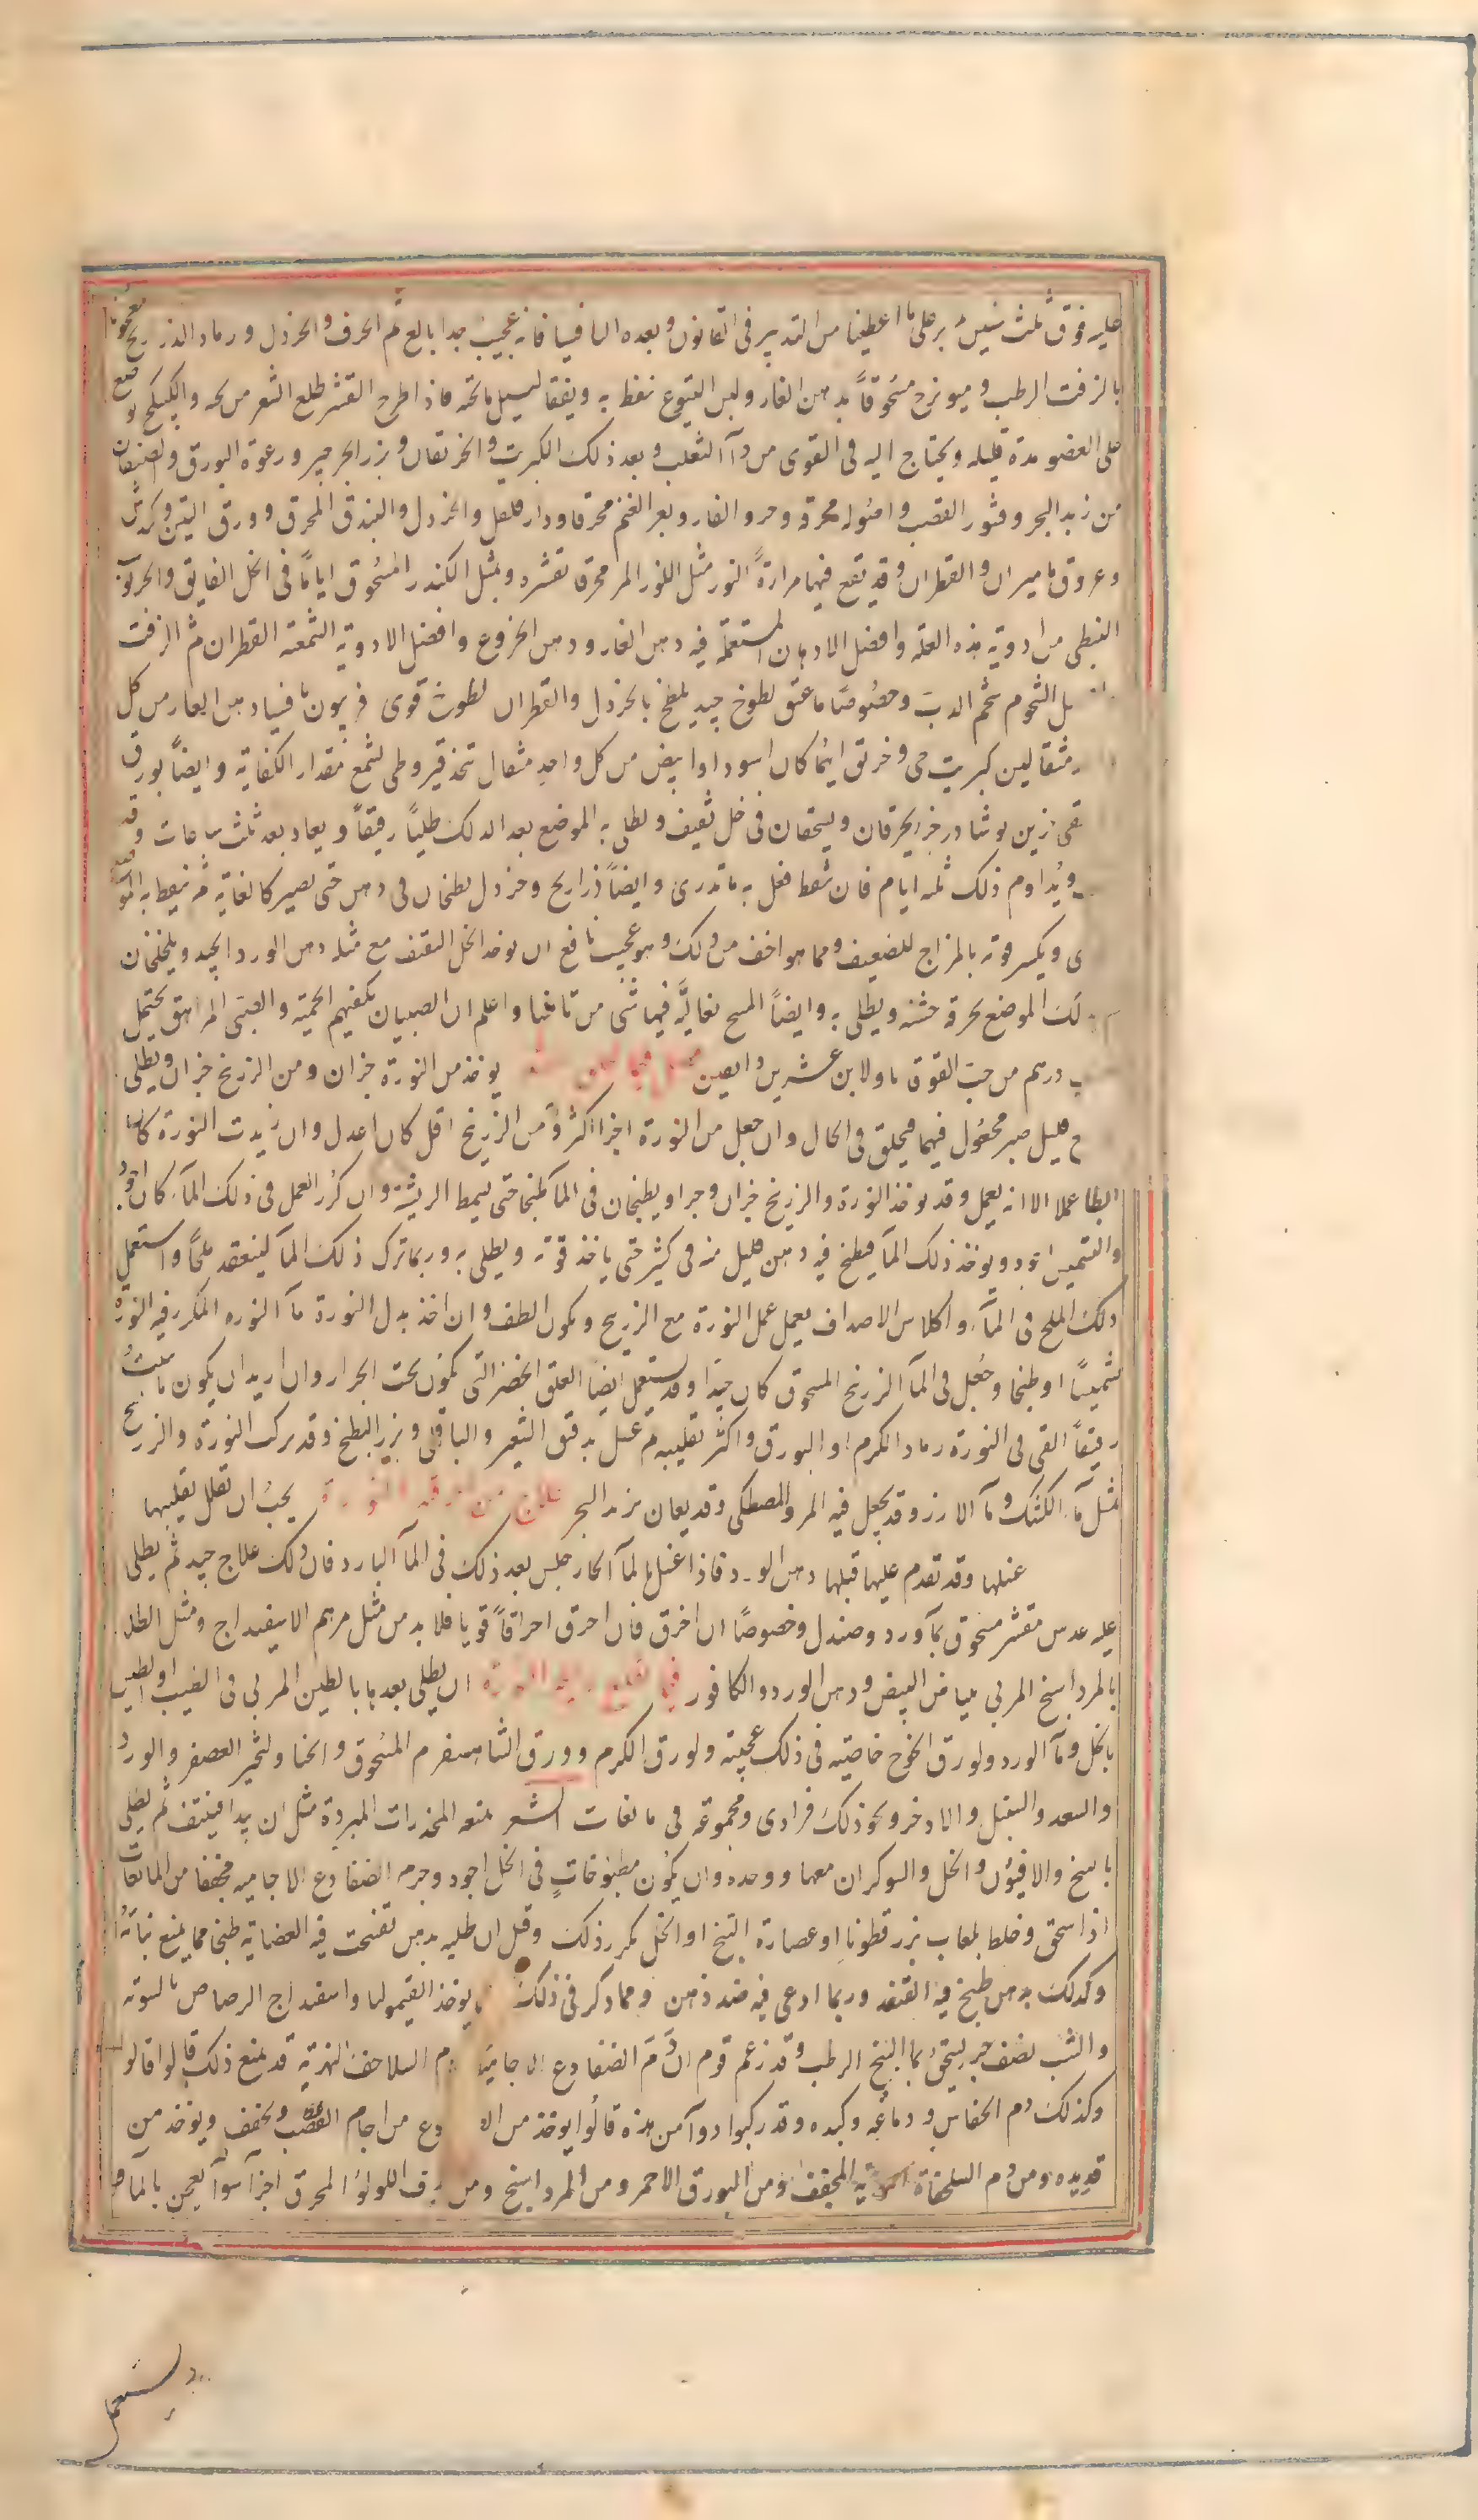 عليه فوق ثلث سنين بر على ما اعطينا من التدبير فى القانون وبعده الثافسيا فانه عجيب جدا بالغ ثم الحرف والخردل ورماد الذراريح معجونا
بالزفت الرطب وميويزج مسحوقاً بدهن الغار ولبن اليتوع ينفط به ويفقأ ليسيل ما تحته فاذا طرح القشر طلع الشعر من تحته والكبيكج يوضع
على العضو مدة قليله ويحتاج اليه فى القوى من دآء الثعلب وبعد ذلك الكبريت والخربقان وبزر الجرجير ورغوة البورق والصنفان
من زبد البحر وقشور القصب واصوله محرقة وخرو الفار وبعر الغنم محرقا ودار فلفل والخردل والبندق المحرق وورق التين وكندش
وعروق ماميران والقطران وقد يقع فيها مرارة الثور مثل اللوز المر محرقا بقشره ومثل الكندر المسحوق اياماً فى الخل الفايق والخرنوب
النبطى من ادوية هذه العلة وافضل الادهان المستعملة فيه دهن الغار ودهن الخروع وافضل الادوية الشمعته القطران ثم الزفت
الشحوم شحم الدب وخصوصاً ما عتق لطوخ جيد يلطخ بالخردل والقطران لطوخ قوى فربيون ثافسيا دهن الغار من كل
مثقالين كبريت حى وخربق ايما كان اسود او ابيض من كل واحد مثقال تتخذ قيروطى بشمع مقدار الكفاية وايضاً بورق
نوشادر يحرقان ويسحقان فى خل ثقيف ويطلى به الموضع بعد الدلك طلياً رقيقاً ويعاد بعد ثلث ساعات وقد
ويداوم ذلك ثلثه ايام فان تنفط فعل به ما تدرى وايضاً ذراريح وخردل يطبخان فى دهن حتى يصير كالغالية ثم ينفط به الموضع
ويكسر قوته بالمزاج للضعيف ومما هو اخف من ذلك وهو عجيب نافع ان يوخذ الخل الثقيف مع مثله دهن الورد الجيد ويلخلخان
الموضع بخرقة خشنه ويطلى به وايضاً المسح بغالية فيها شى من ثافسيا واعلم ان الصبيان يكفيهم الحمية والصبى المراهق يحتمل
درهم من حب القوقايا ولابن عشرين واربعين يوخذ من النورة جزان ومن الزرنيخ جزان ويطلى
قليل صبر مجعول فيها فيحلق فى الحال وان جعل من النورة اجزا اكثر ومن الزرنيخ اقل كان اعدل وان زيدت النورة كان
ابطا عملا الا انه يعمل وقد يوخذ النورة والزرنيخ جزان وجزا ويطبخان فى الماء طبخا حتى يسمط الريشة وان كرر العمل فى ذلك الماء كان اجود
والتشميس اجود ويوخذ ذلك الماء فيطبخ فيه دهن قليل منه فى كثير حتى ياخذ قوته ويطلى به وربما ترك ذلك الماء لينعقد ملحاً واستعمل
ذلك الملح فى الماء واكلاس الاصداف يعمل عمل النورة مع الزرنيخ ويكون الطف وان اخذ بدل النورة ماء النوره المكرر فيه النورة
تشميساً او طبخا وجعل فى الماء الزرنيخ المسحوق كان جيدا وقد يستعمل ايضا العلق الخضر التى تكون تحت الجرار وان اريد ان يكون ما ينبت
رقيقاً القى فى النورة رماد الكرم او البورق واكثر تقليبه ثم غسل بدقيق الشعير والباقلى وبزر البطيخ وقد يترك النورة والزرنيخ
بمثل ماء الكشك وماء الارز وقد يجعل فيه المر والمصطكى وقد يعان بزبد البحر علاج من احرقته النورة يجب ان يقلل تقليبها
غسلها وقد تقدم عليها قبلها دهن الورد فاذا اغتسل بالماء الحار جلس بعد ذلك فى الماء البارد فان ذلك علاج جيد ثم يطلى
عليه عدس مقشر مسحوق بماء ورد وصندل وخصوصاً ان احرق فان احرق احراقاً قويا فلا بد من مثل مرهم الاسفيداج ومثل الطلا
بالمرداسنج المربى ببياض البيض ودهن الورد والكافور فى قلع رايحة النورة ان يطلى بعدها بالطين المربى فى الطيب او الطين
بالخل وماء الورد ولورق الخوخ خاصية فى ذلك عجيبة ولورق الكرم وورق الشاهسفرم المسحوق والحنا ولثجير العصفر والورد
والسعد والسنبل والاذخر ونحو ذلك فرادى ومجموعة فى مانعات الشعر يمنعه المخدرات المبردة مثل ان يبدا فينتف ثم يطلى
بالبنج والافيون والخل والشوكران معها ووحده وان يكون مطبوخات فى الخل اجود وجرم الضفادع الاجامية مجففا من المانعات
اذا سحق وخلط بلعاب بزرقطونا او عصارة البنج او الخل يكرر ذلك وقيل ان طليه بدهن تفسخت فيه العضاية طبخا مما يمنع نباته
وكذلك بدهن طبخ فيه القنفد وربما ادعى فيه ضد ذهن ومما ذكر فى ذلك يوخذ القيموليا واسفيداج الرصاص بالسوية
والشب نصف جز يسحق بماء البنج الرطب وقد زعم قوم ان دم الضفادع الاجامية دم السلاحف النهرية قد يمنع ذلك قالوا قالوا
وكذلك دم الخفاش ودماغه وكبده وقد ركبوا دوآء من هذه قالوا يوخذ من الضفادع من اجام القصب ويجفف ويوخذ من
قديده ومن دم السلحفاة النهرية المجفف ومن البورق الاحمر ومن المرداسنج ومن صدف اللولو المحرق اجزآ سوآ يعجن بالماء
ويستعمل